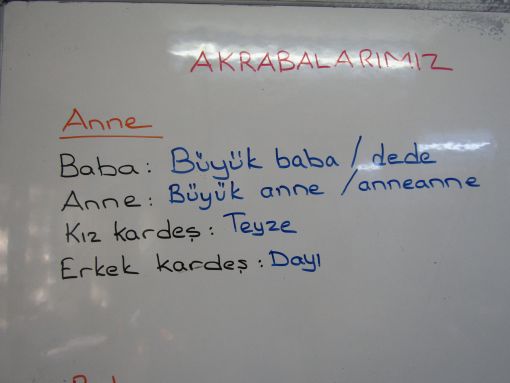 AKRABALARIMIZ
Anne
Baba: Büyük baba / dede
Anne: Büyük anne / anneanne
Kız kardeş: Teyze
Erkek kardeş: Dayı